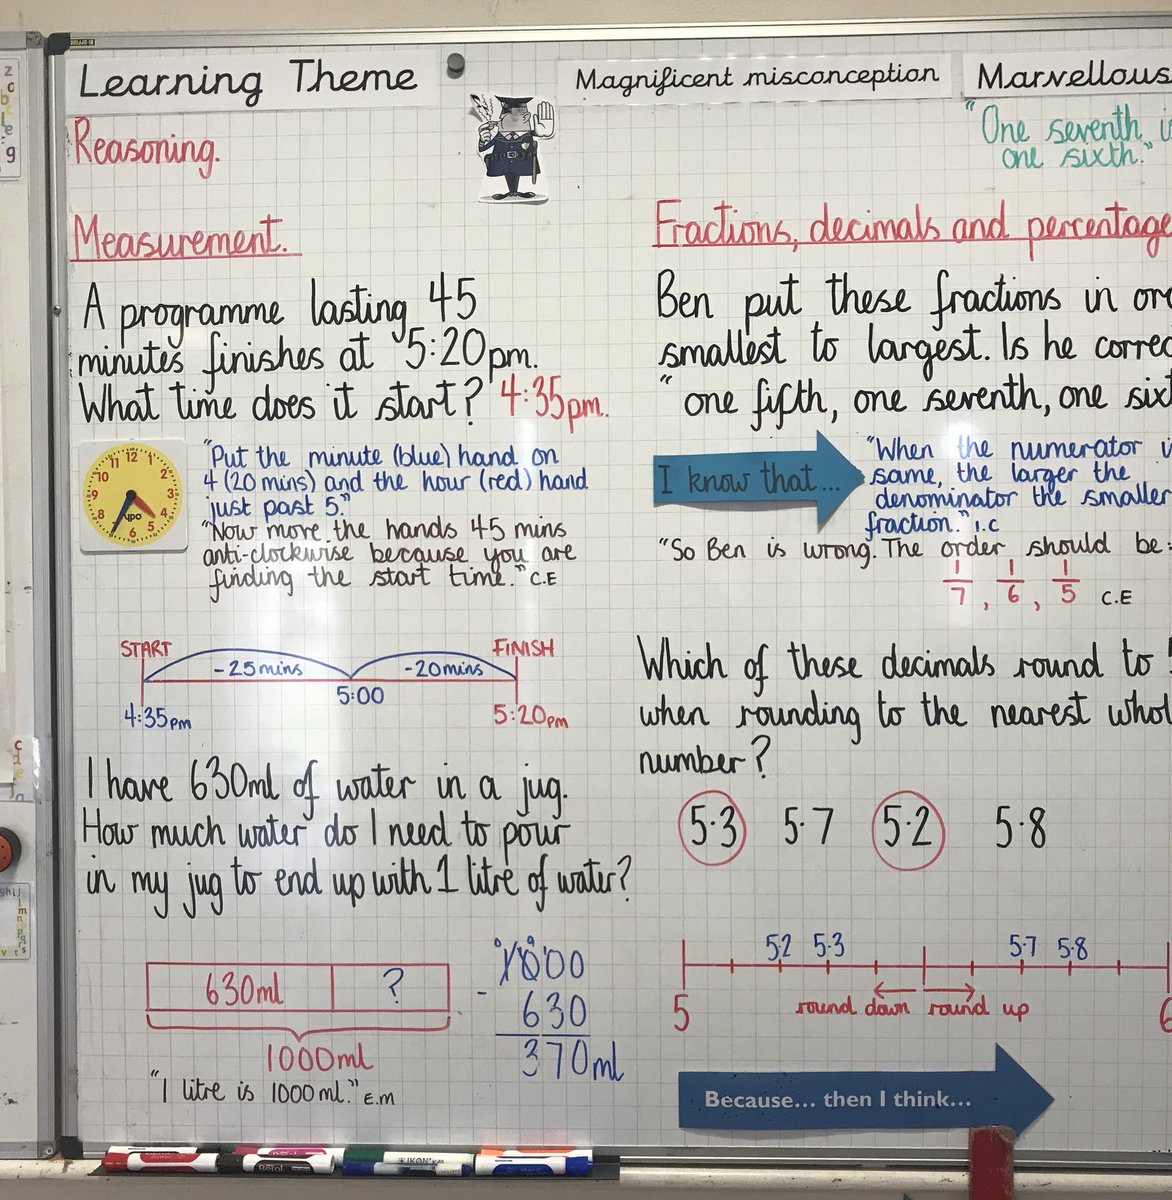 Learning Theme
Magnificent misconception
Marvellous
"One seventh
one sixth."
Reasoning.
Measurement.
A programme lasting 45
minutes finishes at 5:20pm.
What time does it start? 4:35pm.
11 12 1
10 2
9 3
8 4
7 6 5
"Put the minute (blue) hand on
4 (20 mins) and the hour (red) hand
just past 5."
"Now move the hands 45 mins
anti-clockwise because you are
finding the start time." C.E
START FINISH
-25mins -20mins
5:00
4:35pm 5:20pm
I have 630ml of water in a jug.
How much water do I need to pour
in my jug to end up with 1 litre of water?
630ml ?
1000ml
"1 litre is 1000ml." E.M
1000
- 630
370ml
Fractions, decimals and percentage
Ben put these fractions in
smallest to largest. Is he
"one fifth, one seventh, one
I know that...
"When the numerator
same, the larger the
denominator the smaller
fraction." I.C
"So Ben is wrong. The order should be:
1/7, 1/6, 1/5 C.E
Which of these decimals round to
when rounding to the nearest
number?
5·3 5·7 5·2 5·8
5·2 5·3 5·7 5·8
5 round down round up 6
Because... then I think...